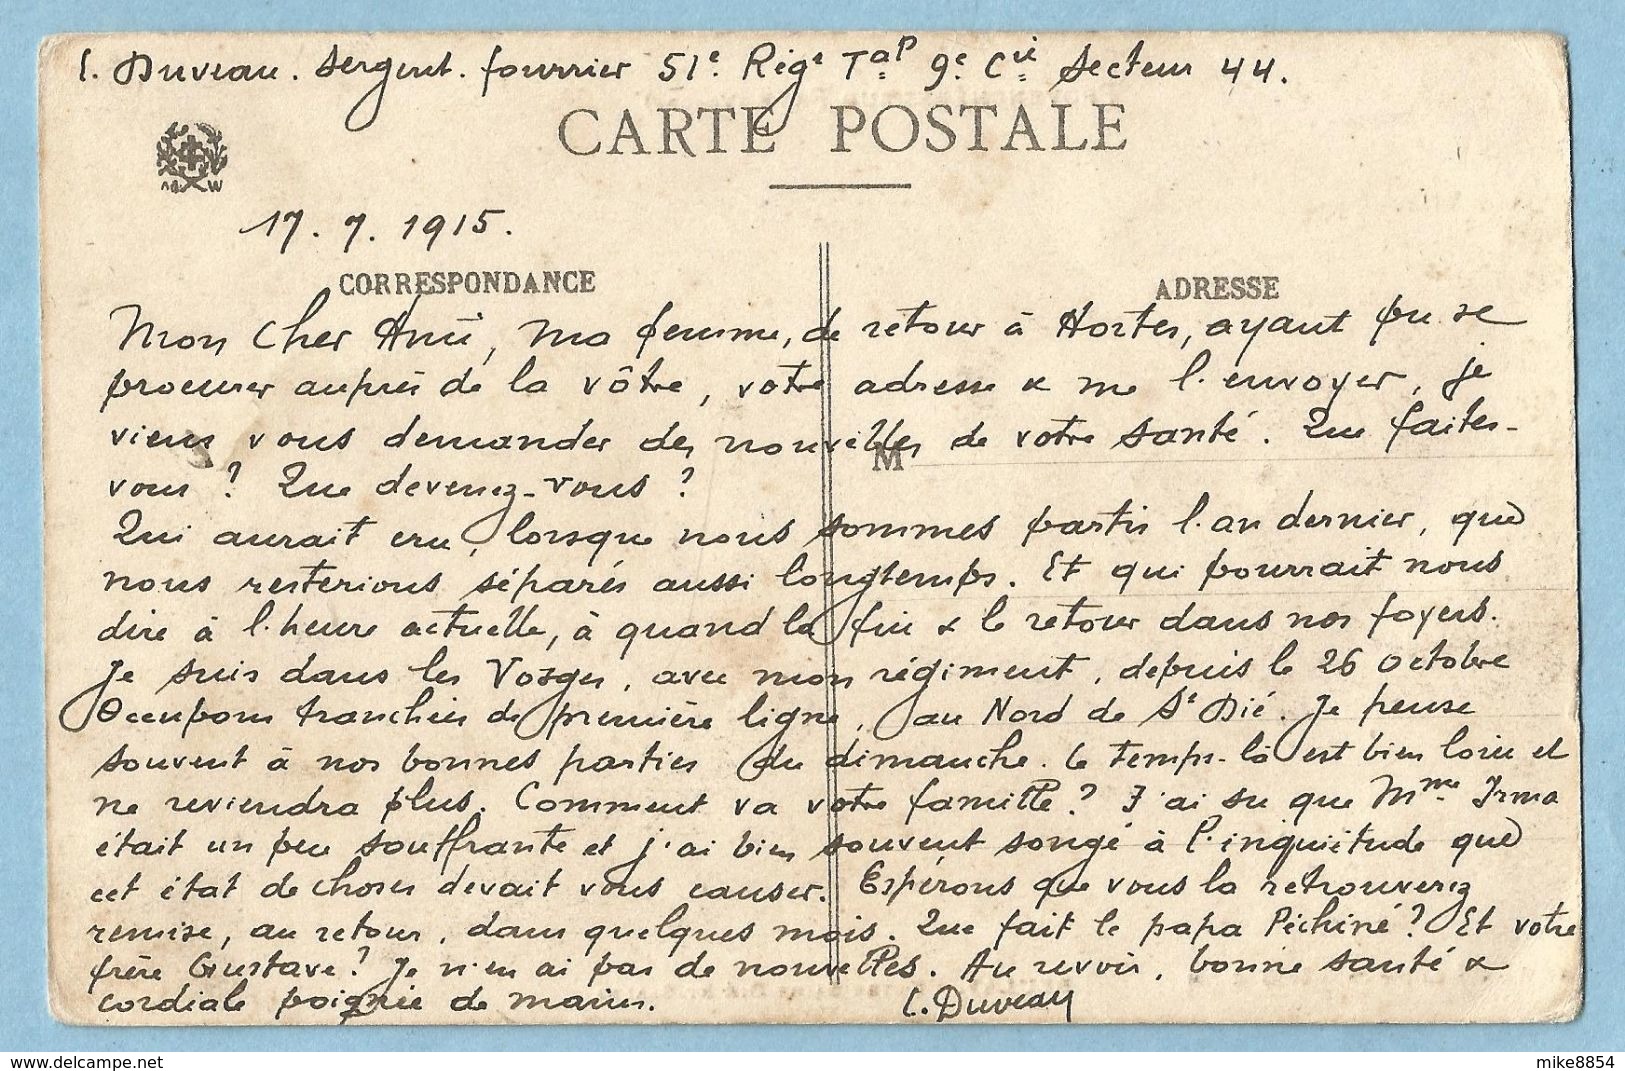 C. Duveau. Sergent. fourrier 51e Rigt Tal 9e Cie Secteur 44.
CARTE POSTALE
17. 7. 1915.
CORRESPONDANCE
ADRESSE
Mon Cher Ami, ma femme, de retour à Hortes, ayant pu se
procurer auprès de la vôtre, votre adresse & me l'envoyer, je
viens vous demander des nouvelles de votre santé. Que faites-
M
vous ? Que devenez-vous ?
Qui aurait cru, lorsque nous sommes partis l'an dernier, que
nous resterions séparés aussi longtemps. Et qui pourrait nous
dire à l'heure actuelle, à quand la fin & le retour dans nos foyers.
Je suis dans les Vosges, avec mon régiment, depuis le 26 octobre
Occupons tranchées de première ligne, au Nord de St Dié. Je pense
souvent à nos bonnes parties du dimanche. Ce temps-là est bien loin et
ne reviendra plus. Comment va votre famille ? J'ai su que Mme Irma
était un peu souffrante et j'ai bien souvent songé à l'inquiétude que
cet état de choses devait vous causer. Espérons que vous la retrouverez
remise, au retour, dans quelques mois. Que fait le papa Péchiné ? Et votre
frère Gustave ? Je n'en ai pas de nouvelles. Au revoir, bonne santé &
cordiale poignée de mains. C. Duveau
mike8854